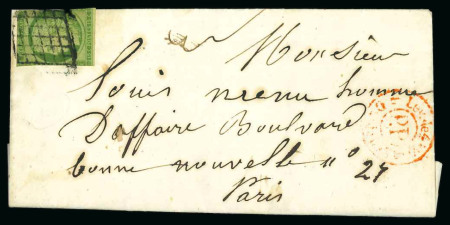 Monsieur
Louis menu homme
Daffaire Boulvare
bonne nouvelle n° 27
Paris